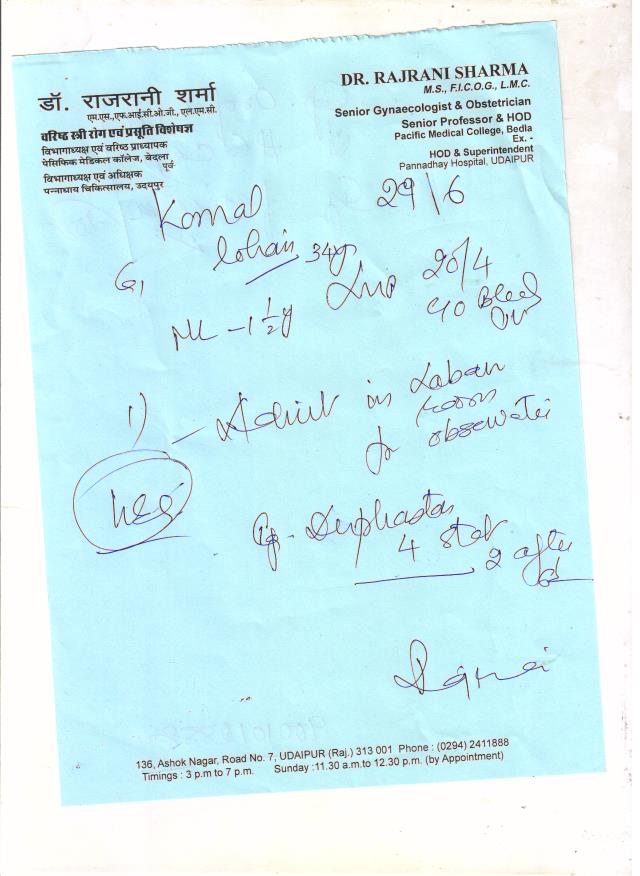 डॉ. राजरानी शर्मा
एम.एस.,एफ.आई.सी.ओ.जी., एल.एम.सी.
वरिष्ठ स्त्री रोग एवं प्रसूति विशेषज्ञ
विभागाध्यक्ष एवं वरिष्ठ प्राध्यापक
पेसिफिक मेडिकल कॉलेज, बेदला
पूर्व
विभागाध्यक्ष एवं अधिक्षक
पन्नाधाय चिकित्सालय, उदयपुर
DR. RAJRANI SHARMA
M.S., F.I.C.O.G., L.M.C.
Senior Gynaecologist & Obstetrician
Senior Professor & HOD
Pacific Medical College, Bedla
Ex. -
HOD & Superintendent
Pannadhay Hospital, UDAIPUR
Komal 29/6
34y
G1 LMP 20/4
ML - 1 1/2 y
1) - Admit in
room
for
4 stat
2 after
136, Ashok Nagar, Road No. 7, UDAIPUR (Raj.) 313 001 Phone : (0294) 2411888
Timings : 3 p.m to 7 p.m. Sunday :11.30 a.m.to 12.30 p.m. (by Appointment)